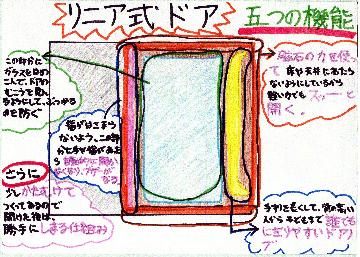 リニア式ドア
五つの機能
この部分に
ガラスをはめ
こんで、ドアの
むこうを見え
るようにして、ぶつかる
のを防ぐ
磁石の力を使
って
床や天井にあたら
ないようにしているから
軽い力でも スゥーと
開く。
指がはさまら
ないよう、この部分
さらに
少しかたむけて
つくってあるので
開けた後は、
勝手に しまる仕組み
手すりを長くして、背の高い
人から子どもまで 誰でも
にぎりやすいドアノ
ブ